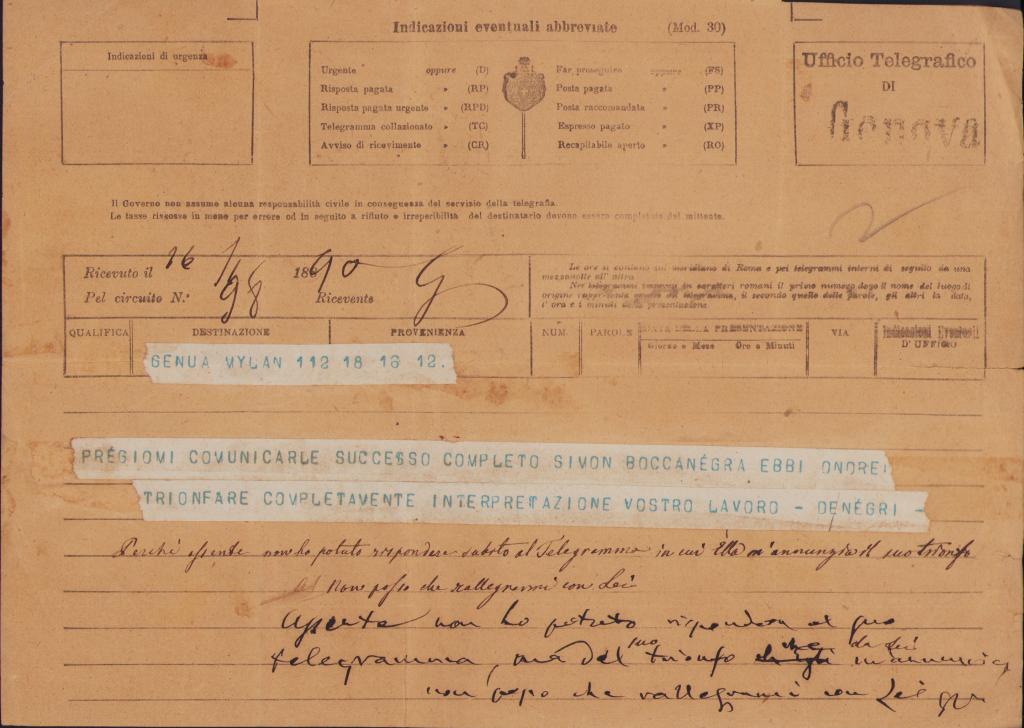 Indicazioni eventuali abbreviate (Mod. 30)
Indicazioni di urgenza
Urgente oppure (D)
Risposta pagata » (RP)
Risposta pagata urgente » (RPD)
Telegramma collazionato » (TC)
Avviso di ricevimento » (CR)
Far proseguire oppure (FS)
Posta pagata » (PP)
Posta raccomandata » (PR)
Espresso pagato » (XP)
Recapitabile aperto » (RO)
Ufficio Telegrafico
DI
Genova
Il Governo non assume alcuna responsabilità civile in conseguenza del servizio della telegrafia.
Le tasse riscosse in meno per errore od in seguito a rifiuto o irreperibilità del destinatario devono essere completate dal mittente.
Ricevuto il 16/1 1890
Pel circuito N.° 98 Ricevente
Le ore si contano sul meridiano di Roma e pei telegrammi interni di seguito da una
mezzanotte all'altra.
Nei telegrammi impressi in caratteri romani il primo numero dopo il nome del luogo di
origine rappresenta quello del telegramma, il secondo quello delle parole, gli altri la data,
l'ora e i minuti della presentazione.
QUALIFICA DESTINAZIONE PROVENIENZA NUM. PAROLE DATA DELLA PRESENTAZIONE VIA Indicazioni Eventuali
Giorno e Mese Ore e Minuti D'UFFICIO
GENUA MYLAN 112 18 16 12.
PRÉGIOMI COMUNICARLE SUCCESSO COMPLETO SIMON BOCCANÉGRA EBBI ONORE
TRIONFARE COMPLETAMENTE INTERPRETAZIONE VOSTRO LAVORO - DENÉGRI -
Perchè assente non ho potuto rispondere subito al Telegramma in cui Ella m'annunzia il suo trionfo
Non posso che rallegrarmi con Lei
Assente non ho potuto rispondere al suo
telegramma, ma del suo trionfo che da Lei m'annunzia
non posso che rallegrarmi con Lei